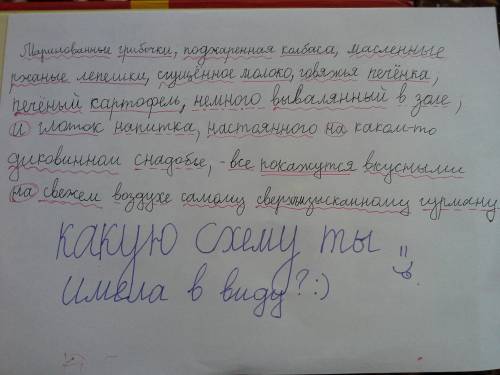 Маринованные грибочки, поджаренная колбаса, масленные
ржаные лепешки, сгущённое молоко, говяжья печёнка,
печёный картофель, немного вывалянный в золе,
и глоток напитка, настоянного на каком-то
диковинном снадобье, - все покажутся вкусными
на свежем воздухе самому сверхизысканному гурману
какую схему ты
имела в виду? :)